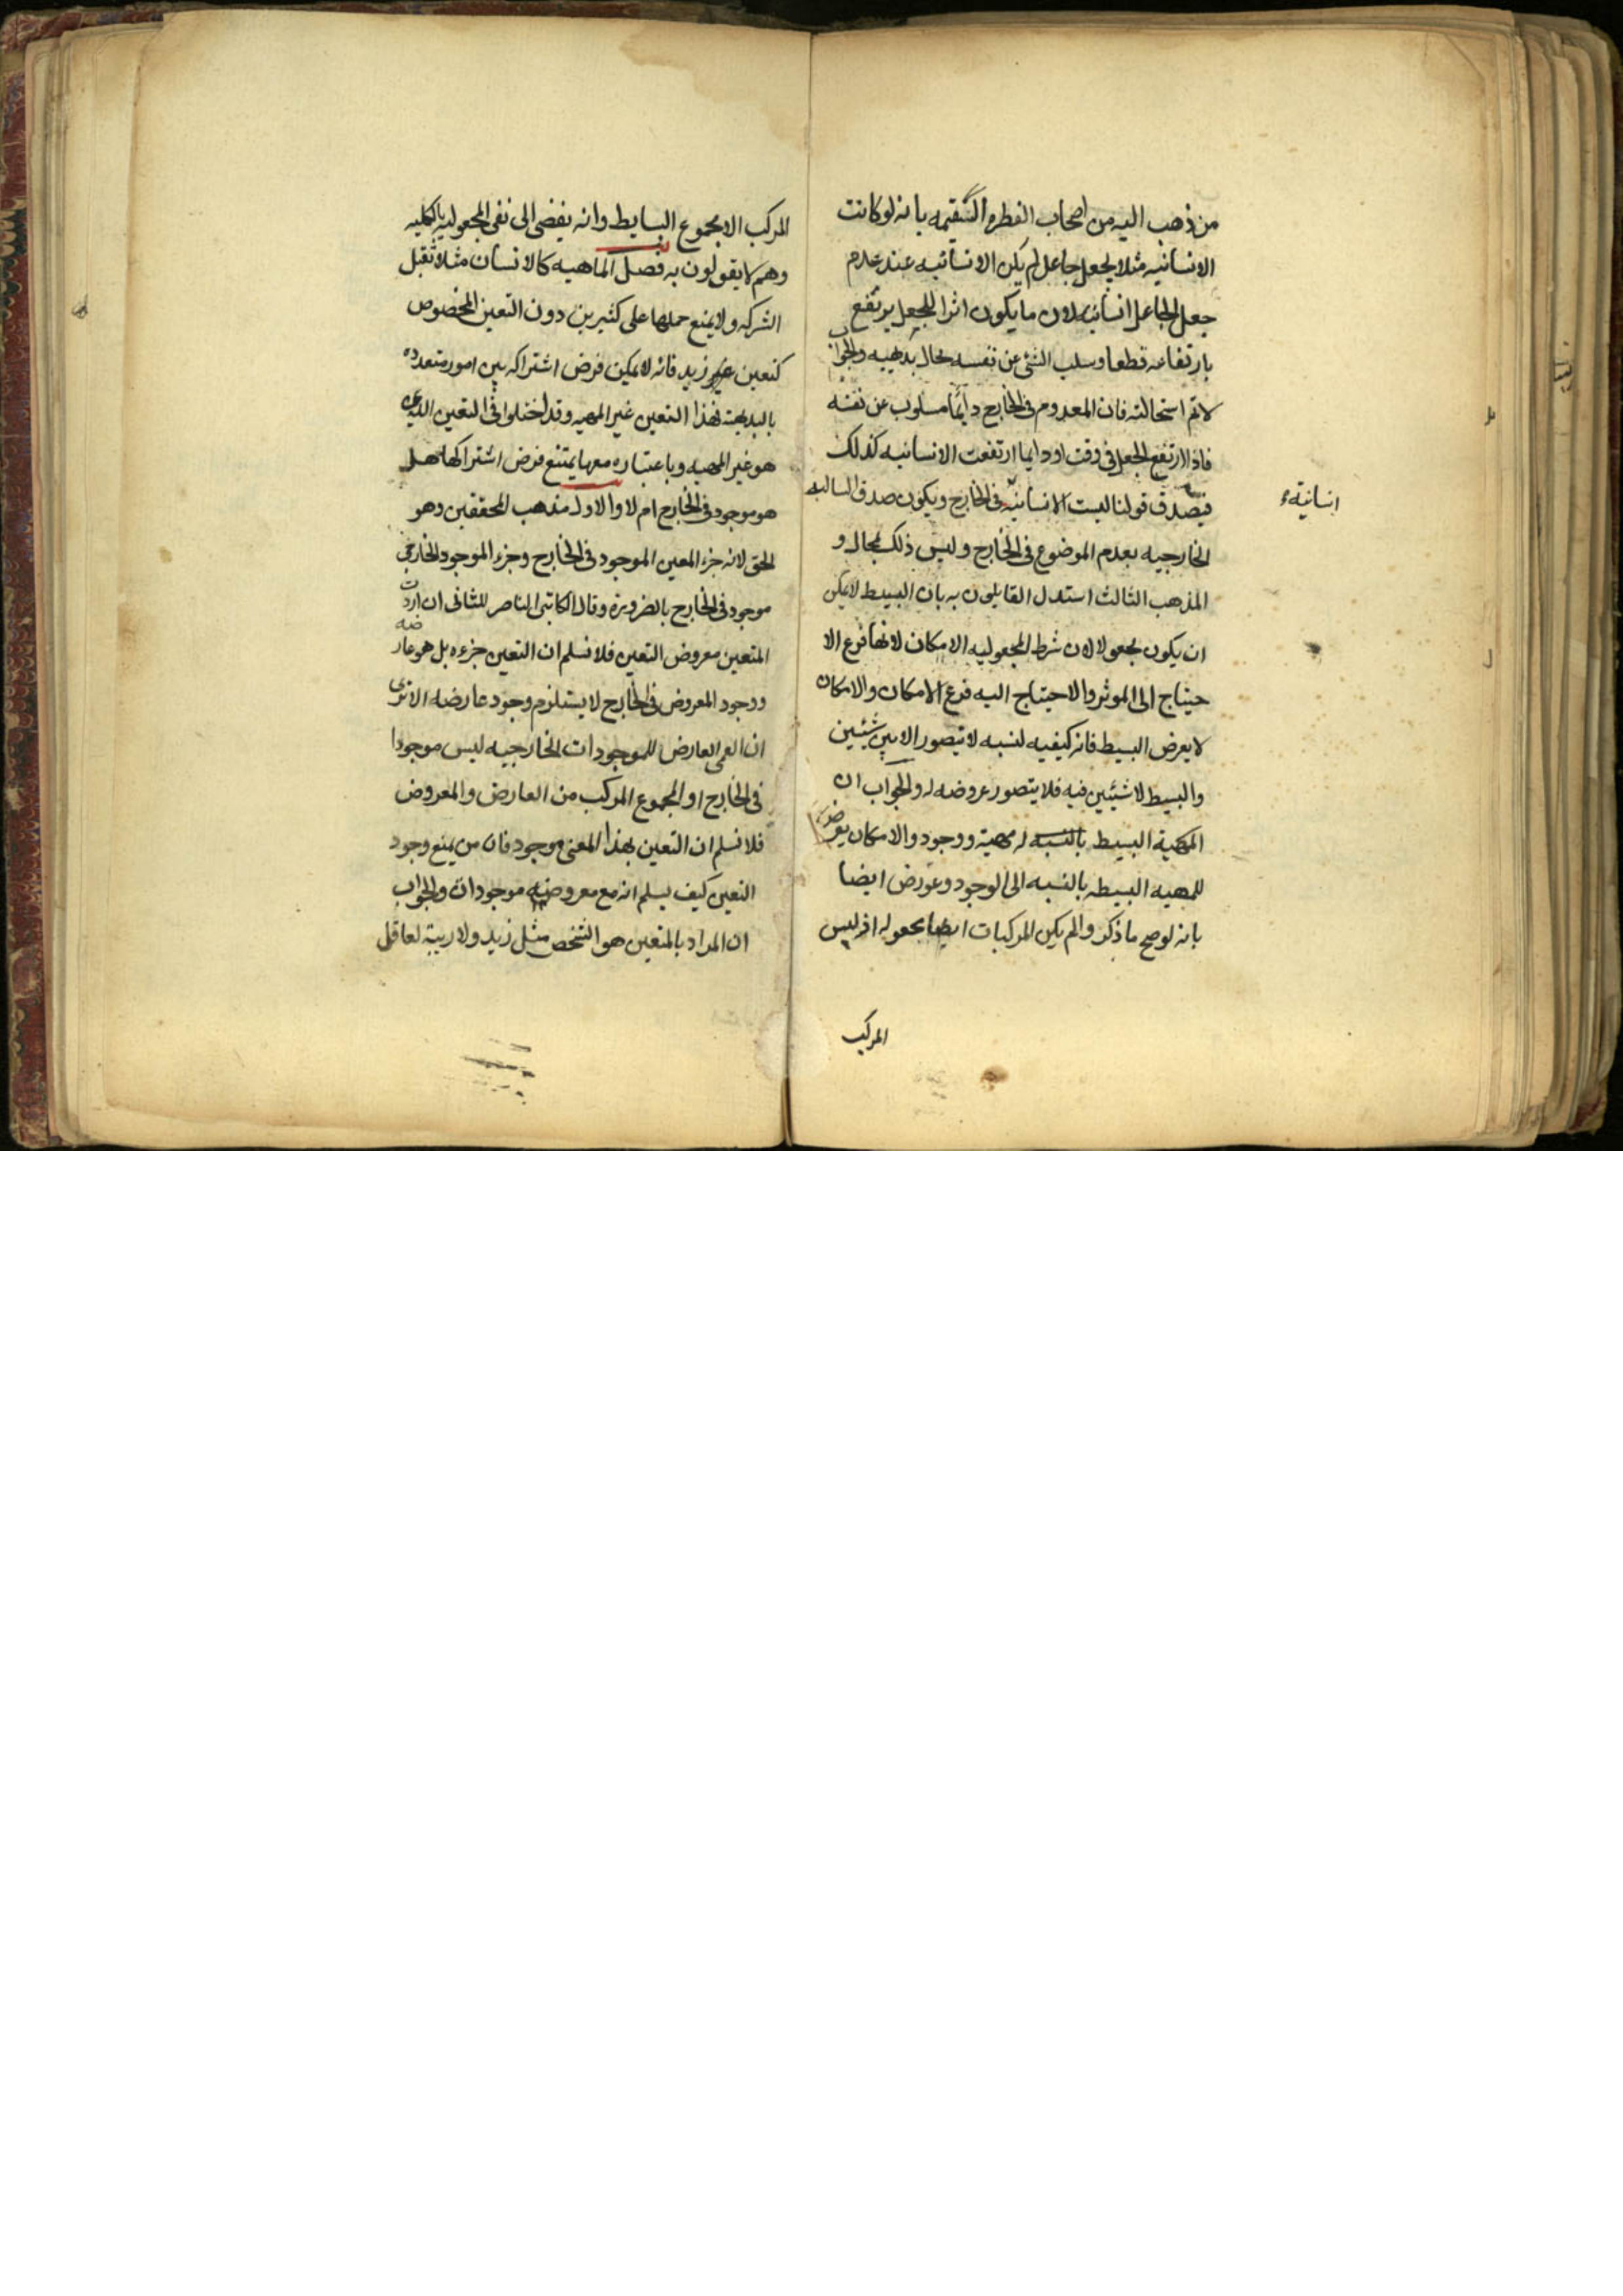 من ذهب اليه من اصحاب الفطره السقيمه بانه لو كانت
الانسانيه مثلا بجعل جاعل لم يكن الانسانيه عند عدم
جعل الجاعل انسانيه لان ما يكون اثرا للجعل يرتفع
بارتفاعه قطعا وسلب الشئ عن نفسه محال بديهيه والجواب
لانم استحالته فان المعدوم فى الخارج دايما مسلوب عن نفسه
فاذا ارتفع الجعل فى وقت او دايما ارتفعت الانسانيه كذلك
فيصدق قولنا ليست الانسانية فى الخارج ويكون صدق السالبه
انسانية
الخارجيه بعدم الموضوع فى الخارج وليس ذلك بمحال و
المذهب الثالث استدل القايلون به بان البسيط لا يمكن
ان يكون مجعولا لان شرط المجعوليه الامكان لانها فرع الا
حتياج الى الموثر والاحتياج اليه فرع الامكان والامكان
لا يعرض البسيط فانه كيفيه لنسبه لا تتصور الا بين شيئين
والبسيط لا شيئين فيه فلا يتصور عروضه له والجواب ان
المهية البسيط بالنسبه له مهية ووجود والامكان يعرض
للمهيه البسيطه بالنسبه الى الوجود وعورض ايضا
بانه لو صح ما ذكر والم يكن المركبات ايضا مجعوله اذ ليس
المركب
المركب الا مجموع البسايط وانه يفضى الى نفى المجعوليه بالكليه
وهم لا يقولون به فصل الماهيه كالانسان مثلا تقبل
الشركه ولا يمنع حملها على كثيرين دون التعين المخصوص
كتعين زيد فانه لا يمكن فرض اشتراكه بين امور متعدده
بالبديهة فهذا التعين غير المهيه وقد اختلوا فى التعين الذى
هو غير المهيه وباعتباره معها يمتنع فرض اشتراكها هل
هو موجود فى الخارج ام لا والاول مذهب المحققين وهو
الحق لانه جزء المعين الموجود فى الخارج وجزء الموجود الخارجى
موجود فى الخارج بالضرورة وقال الكاتبى الناصر للثانى ان اردت
المتعين معروض التعين فلا نسلم ان التعين جزءه بل هو عارضه
ووجود المعروض فى الخارج لا يستلزم وجود عارضه الا ترى
ان العمى العارض للموجودات الخارجيه ليس موجودا
فى الخارج او المجموع المركب من العارض والمعروض
فلا نسلم ان التعين بهذا المعنى موجود فان من يمنع وجود
التعين كيف يسلم انه مع معروضه موجودان والجواب
ان المراد بالمتعين هو الشخص مثل زيد ولا ريبة لعاقل